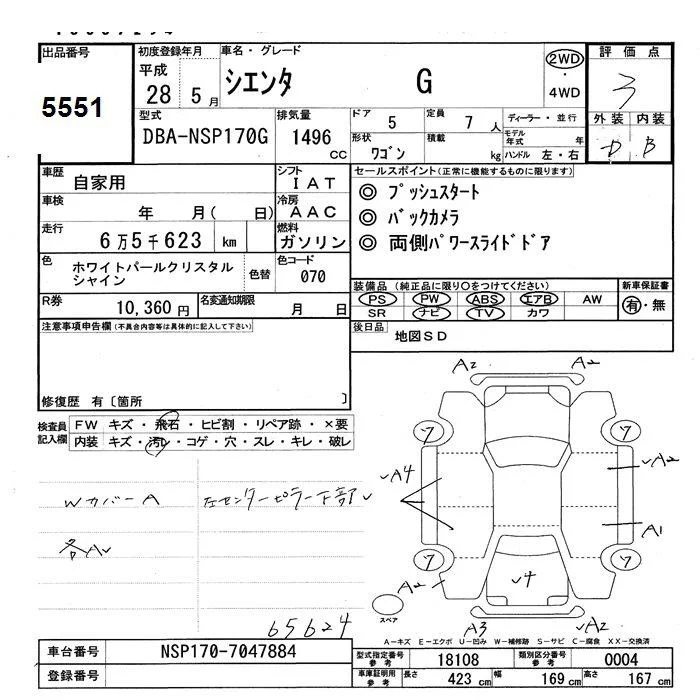 出品番号
5551
初度登録年月
平成
28 5月
車名・グレード
シエンタ G
2WD
・
4WD
評価点
3
外装 内装
D B
型式
DBA-NSP170G
排気量
1496 CC
ドア
5
定員
7 人
形状
ワゴン
積載
kg
ディーラー・並行
モデル年式 年
ハンドル 左・右
車歴
自家用
シフト
IAT
車検
年 月( 日)
冷房
AAC
走行
6万5千623 km
燃料
ガソリン
色
ホワイトパールクリスタル
シャイン
色替
色コード
070
R券
10,360円
名変通知期限
月 日
セールスポイント(正常に機能するものに限ります)
◎ プッシュスタート
◎ バックカメラ
◎ 両側パワースライドドア
装備品(純正品に限り○をつけてください)
PS PW ABS エアB AW
SR ナビ TV カワ
新車保証書
有・無
後日品
地図SD
注意事項申告欄(不具合内容等は具体的に記入して下さい)
修復歴 有〔箇所 〕
検査員記入欄
FW キズ・飛石・ヒビ割・リペア跡・×要
内装 キズ・汚レ・コゲ・穴・スレ・キレ・破レ
WカバーA
左センターピラー下部
各A
65624
A2 A2
ワ ワ
A4
A2
A1
ワ ワ
A2
4
A3 A2
スペア
A-キズ E-エクボ U-凹み W-補修跡 S-サビ C-腐食 XX-交換済
車台番号
NSP170-7047884
登録番号
型式指定番号
参考
18108
類別区分番号
参考
0004
車庫証明用
参考
長さ
423 cm
幅
169 cm
高さ
167 cm